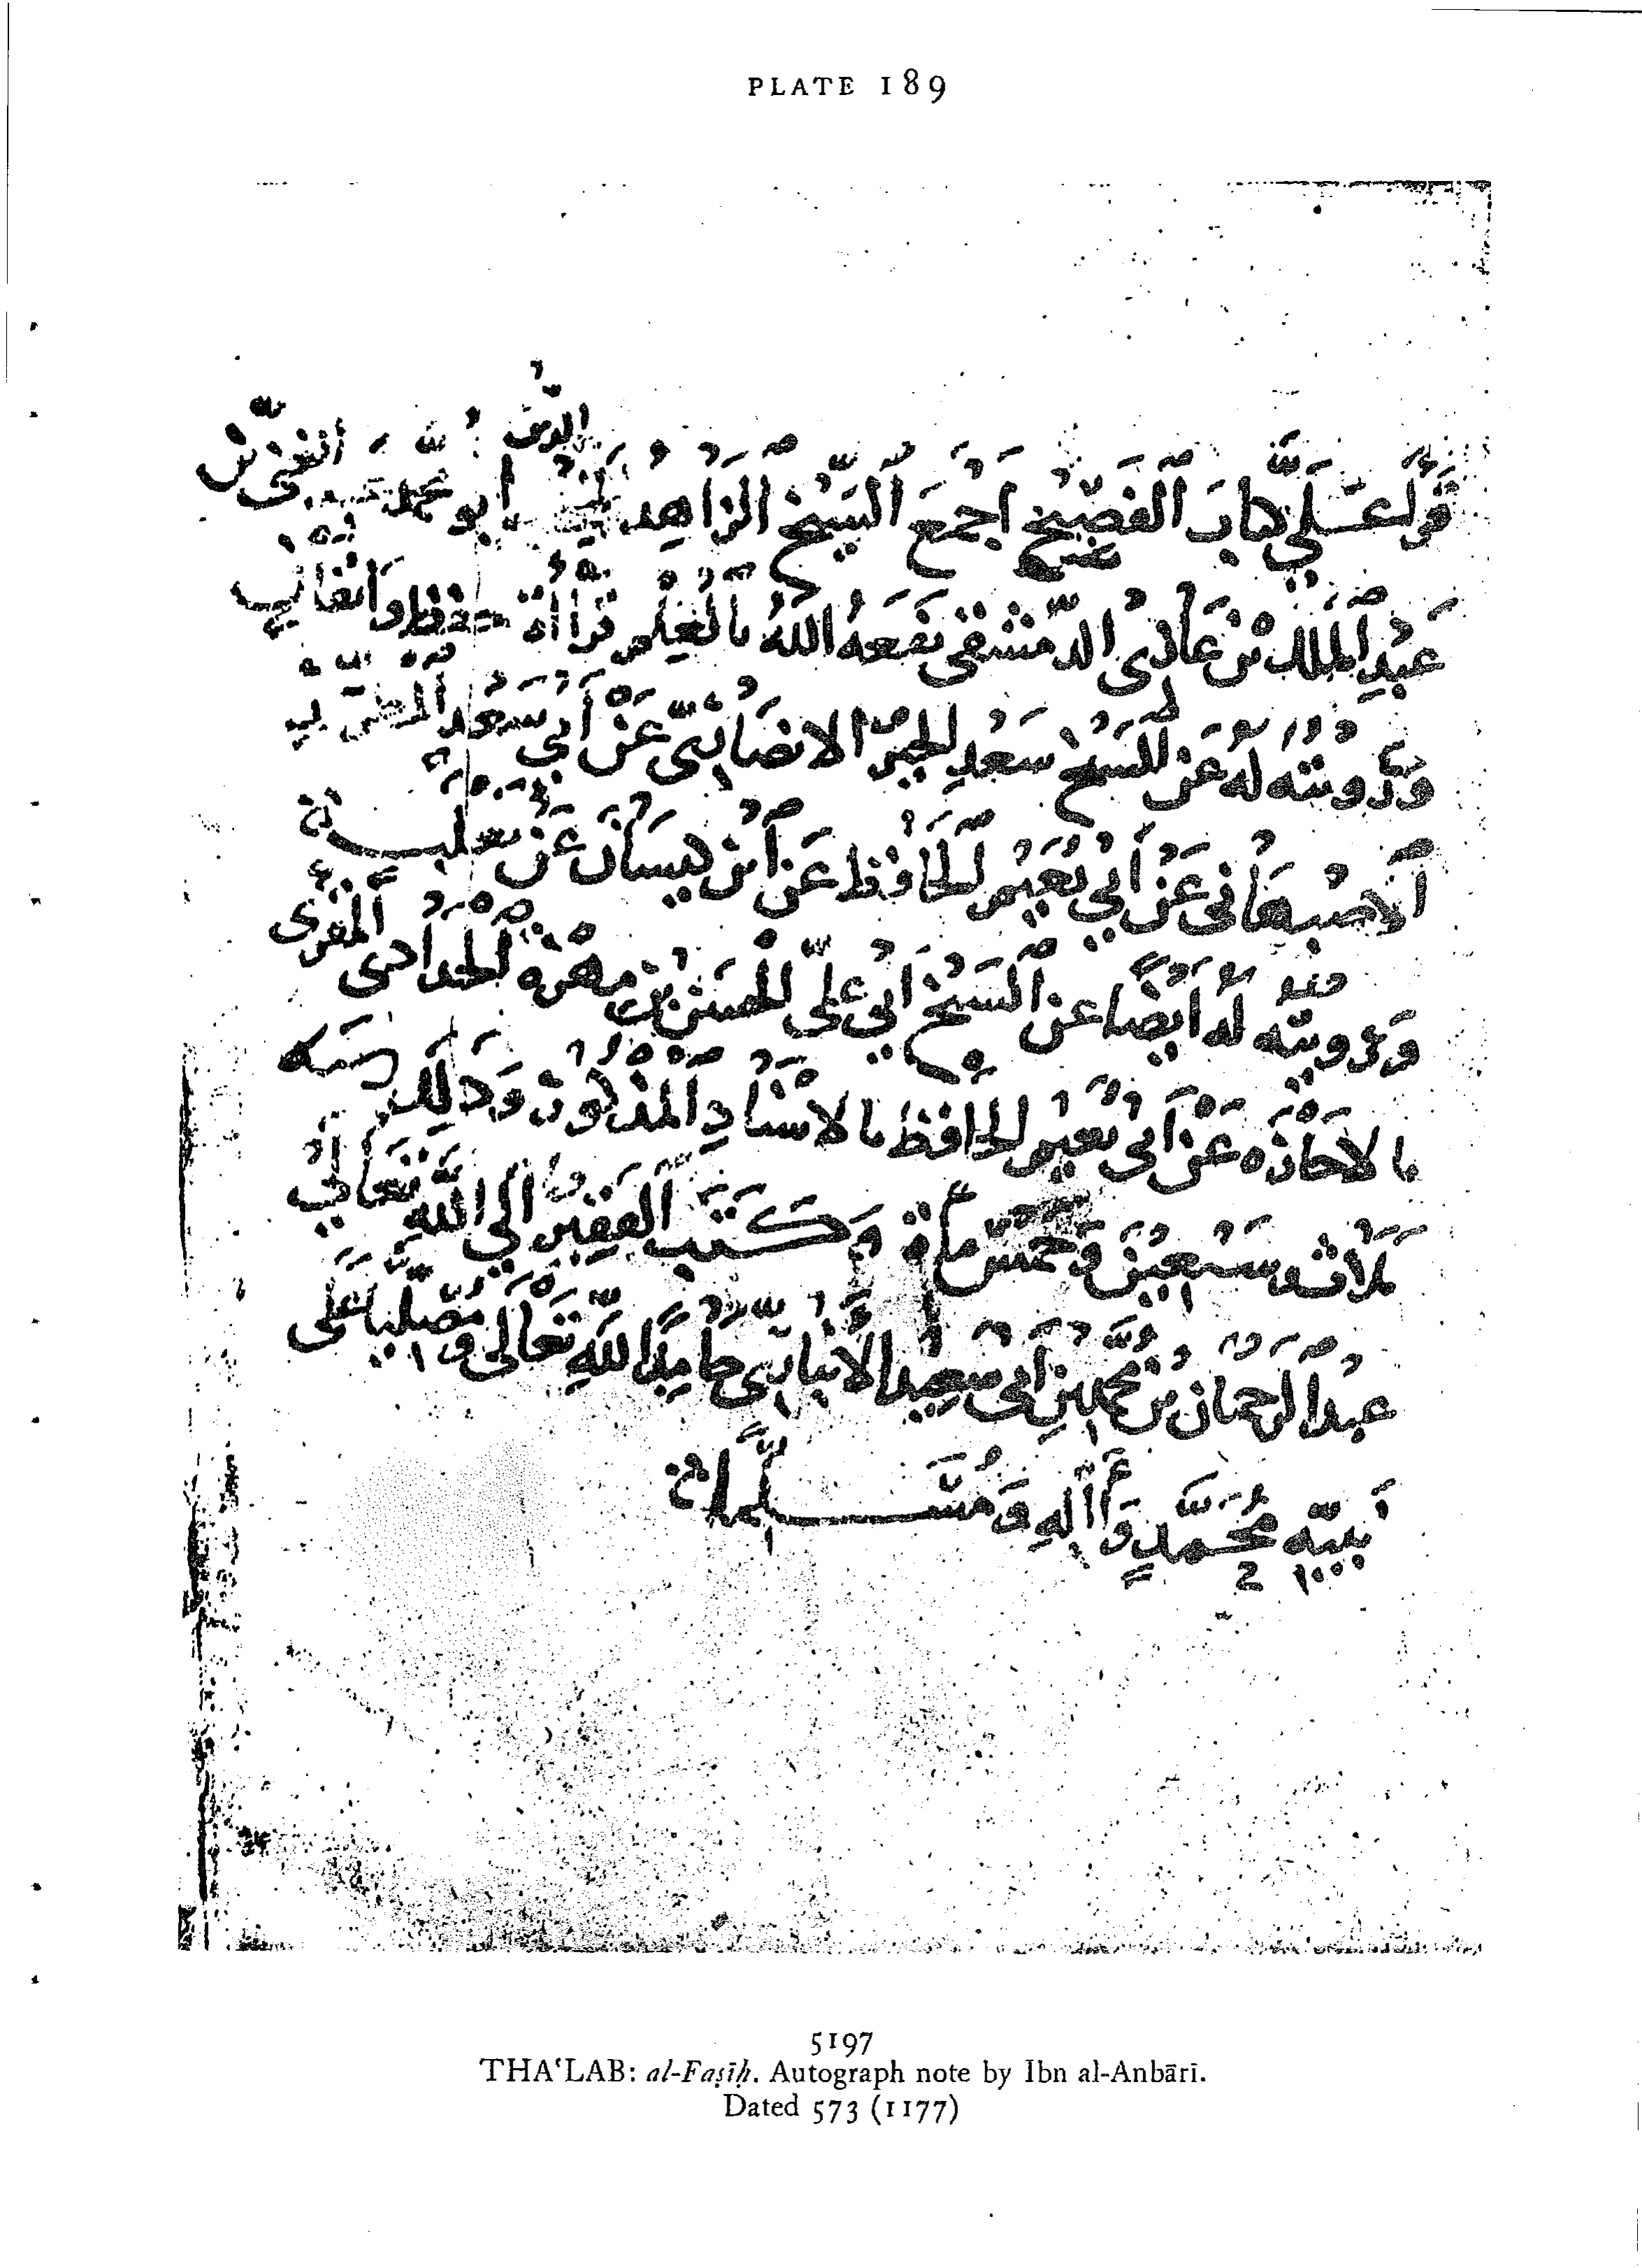 PLATE 189
الدين
قرأ علي كتاب الفصيح أجمع الشيخ الزاهد أبو محمد
عبد الملك بن عادى الدمشقي نفعه الله بالعلم قراءة حفظ واتقان
ورويته له عن الشيخ سعد الخير الأنصاري عن أبي سعد المطرز
الأصبهاني عن أبي نعيم الحافظ عن ابن كيسان عن ثعلب
ورويته له أيضا عن الشيخ أبي علي الحسن بن مهرة الحداد المقرئ
بالاجازة عن أبي نعيم الحافظ بالاسناد المذكور وذلك سنة
ثلاث وسبعين وخمس مائة وكتب الفقير إلى الله تعالى
عبد الرحمان بن محمد بن أبي سعيد الأنباري حامدا لله تعالى ومصليا على
نبيه محمد وآله ومسلما
5197
THA‘LAB: al-Faṣīḥ. Autograph note by Ibn al-Anbārī.
Dated 573 (1177)